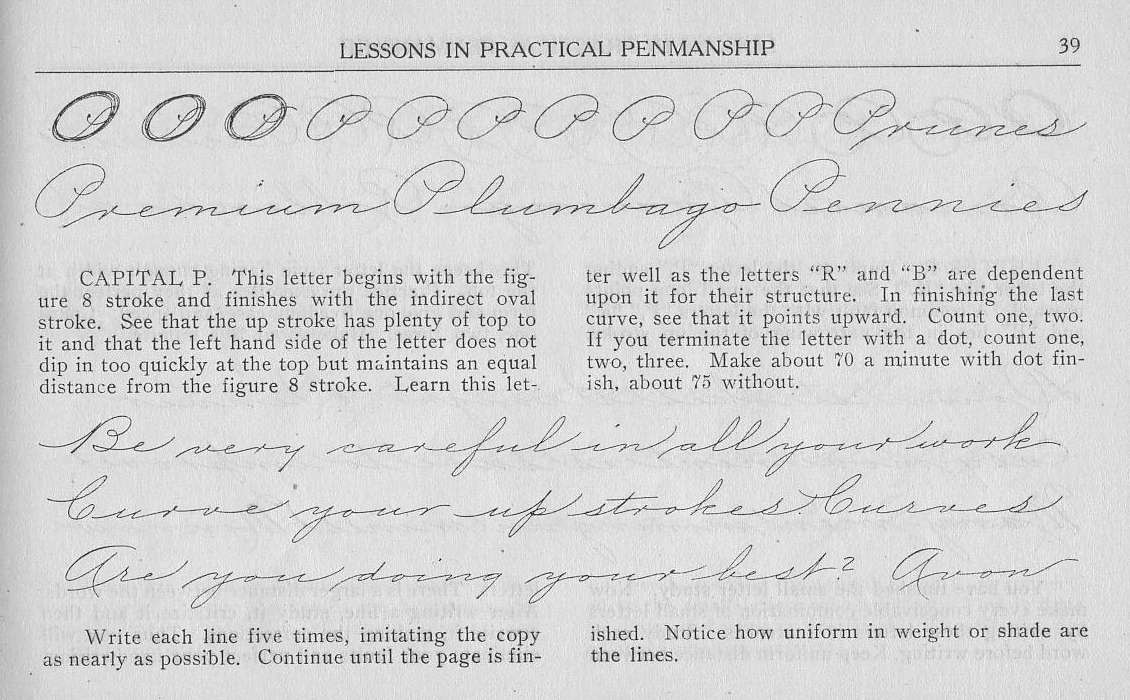 LESSONS IN PRACTICAL PENMANSHIP 39
P P P P P P P P P P Prunes
Premium Plumbago Pennies
CAPITAL P. This letter begins with the fig-
ure 8 stroke and finishes with the indirect oval
stroke. See that the up stroke has plenty of top to
it and that the left hand side of the letter does not
dip in too quickly at the top but maintains an equal
distance from the figure 8 stroke. Learn this let-
ter well as the letters "R" and "B" are dependent
upon it for their structure. In finishing the last
curve, see that it points upward. Count one, two.
If you terminate the letter with a dot, count one,
two, three. Make about 70 a minute with dot fin-
ish, about 75 without.
Be very careful in all your work
Curve your up strokes Curves
Are you doing your best? Avon
Write each line five times, imitating the copy
as nearly as possible. Continue until the page is fin-
ished. Notice how uniform in weight or shade are
the lines.